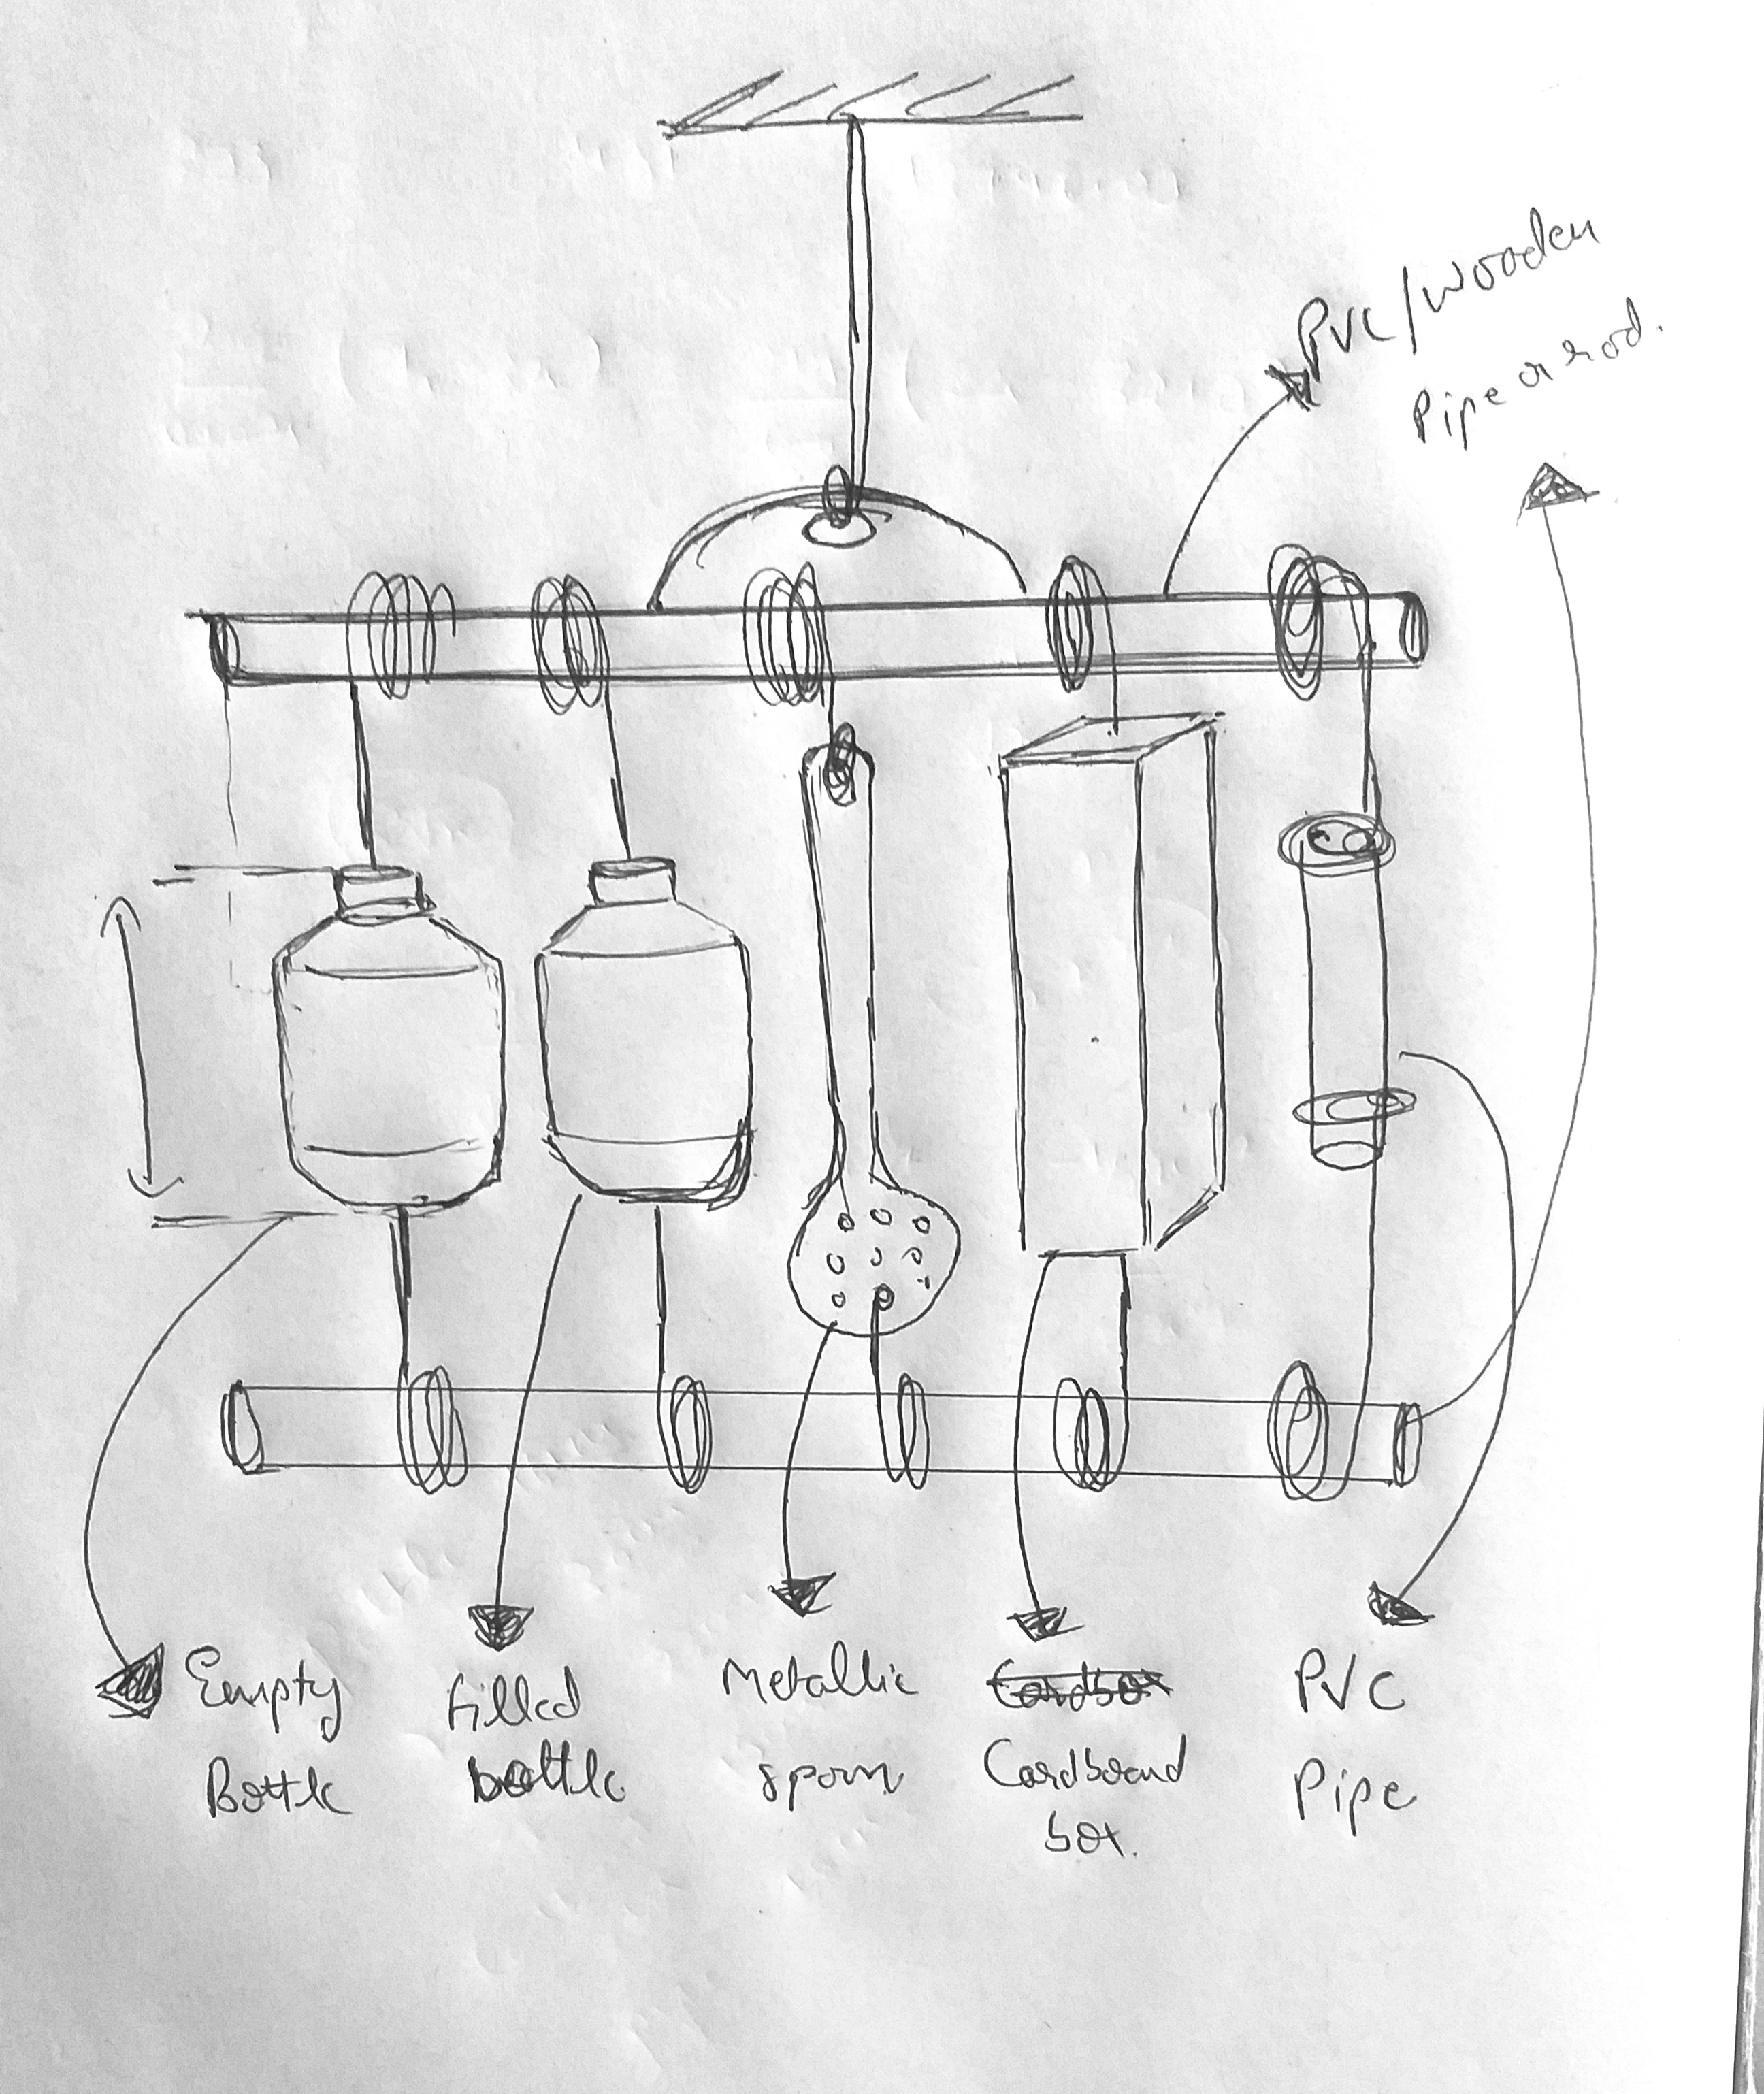 PVC/wooden
Pipe or rod.
Empty
Bottle
filled
bottle
Metallic
spoon
Cardboard
box.
PVC
Pipe